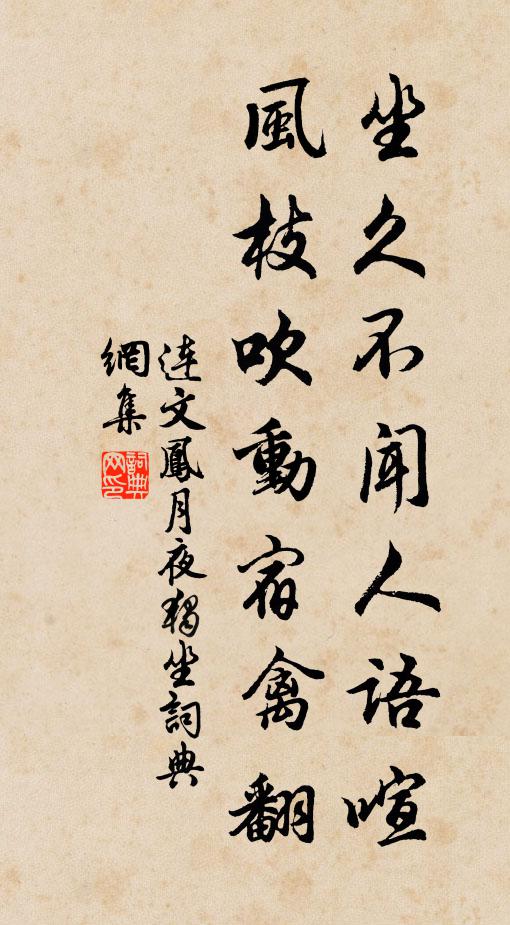 坐久不聞人語喧
風枝吹動宿禽翻
連文鳳月夜獨坐詞典
網集
詞典
网印